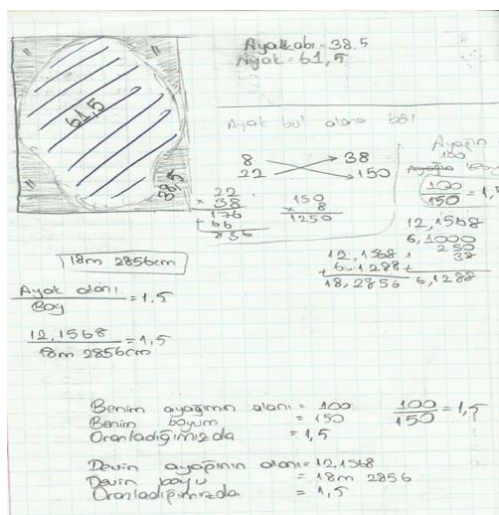 Ayakkabı = 38.5
Ayak = 61,5
61,5
38,5
Ayak bul alana böl
8 38
22 150
22
× 38
176
+ 66
836
150
× 8
1250
Ayağın
150
100
150 = 1,
12,1568
6,1000
250
38
6,1288
12,1568
+ 6,1288
18,2856
18m 2856cm
Ayak alanı = 1,5
Boy
12,1568 = 1,5
18m 2856cm
Benim ayağımın alanı = 100
Benim boyum = 150
Oranladığımızda = 1,5
100 = 1,5
150
Devin ayağının alanı = 12,1568
Devin boyu = 18m 2856
Oranladığımızda = 1,5